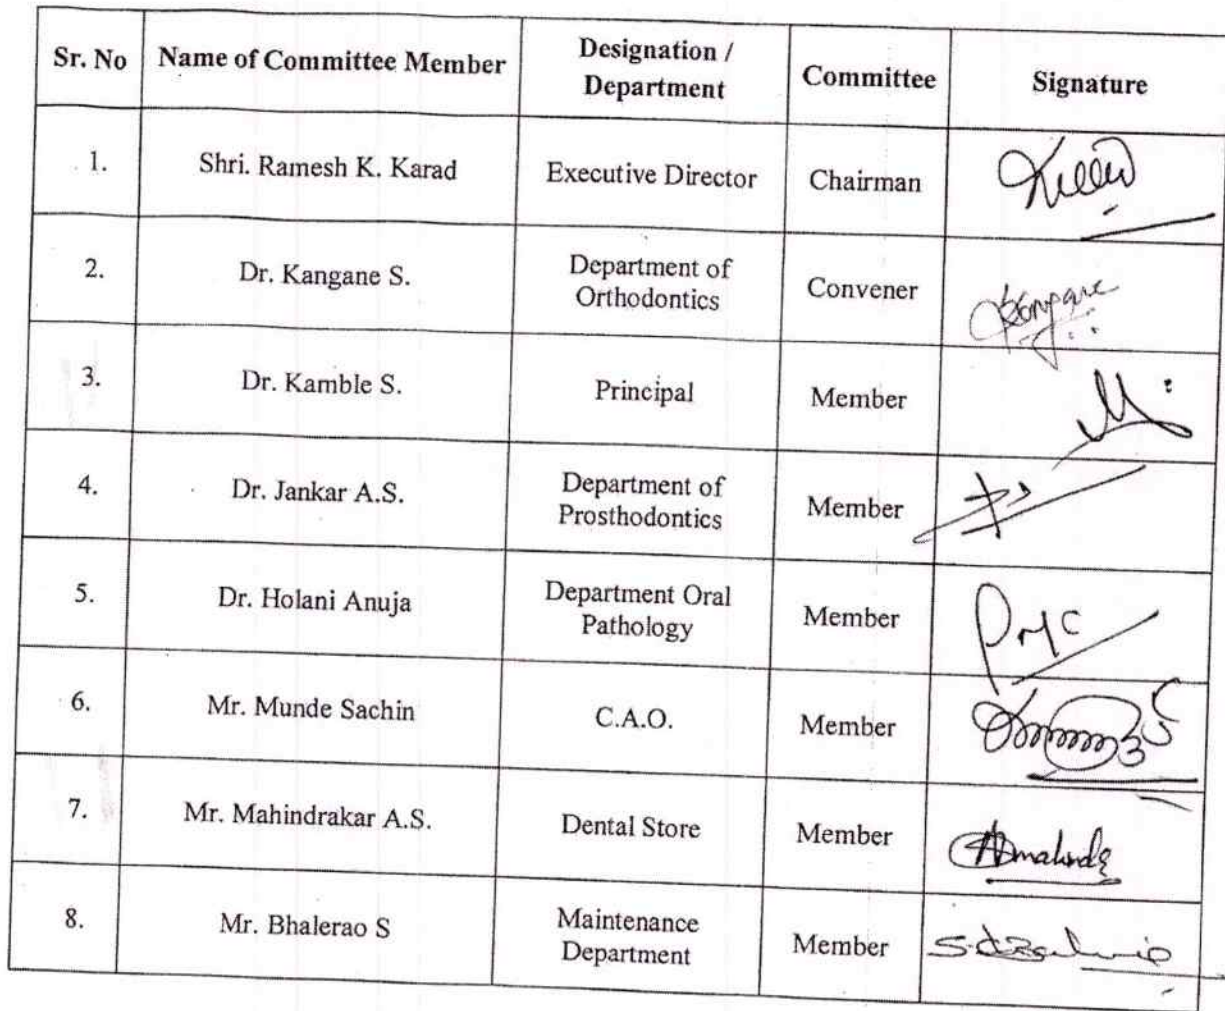 Sr. No Name of Committee Member Designation / Department Committee Signature
1. Shri. Ramesh K. Karad Executive Director Chairman
2. Dr. Kangane S. Department of Orthodontics Convener Kangane
3. Dr. Kamble S. Principal Member
4. Dr. Jankar A.S. Department of Prosthodontics Member
5. Dr. Holani Anuja Department Oral Pathology Member
6. Mr. Munde Sachin C.A.O. Member
7. Mr. Mahindrakar A.S. Dental Store Member
8. Mr. Bhalerao S Maintenance Department Member